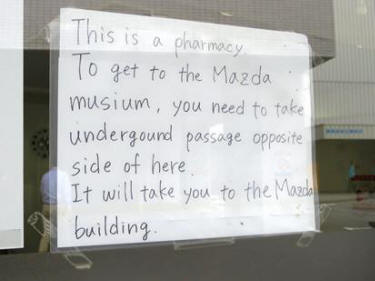 This is a pharmacy.
To get to the Mazda
musium, you need to take
undergound passage opposite
side of here.
It will take you to the Mazda
building.